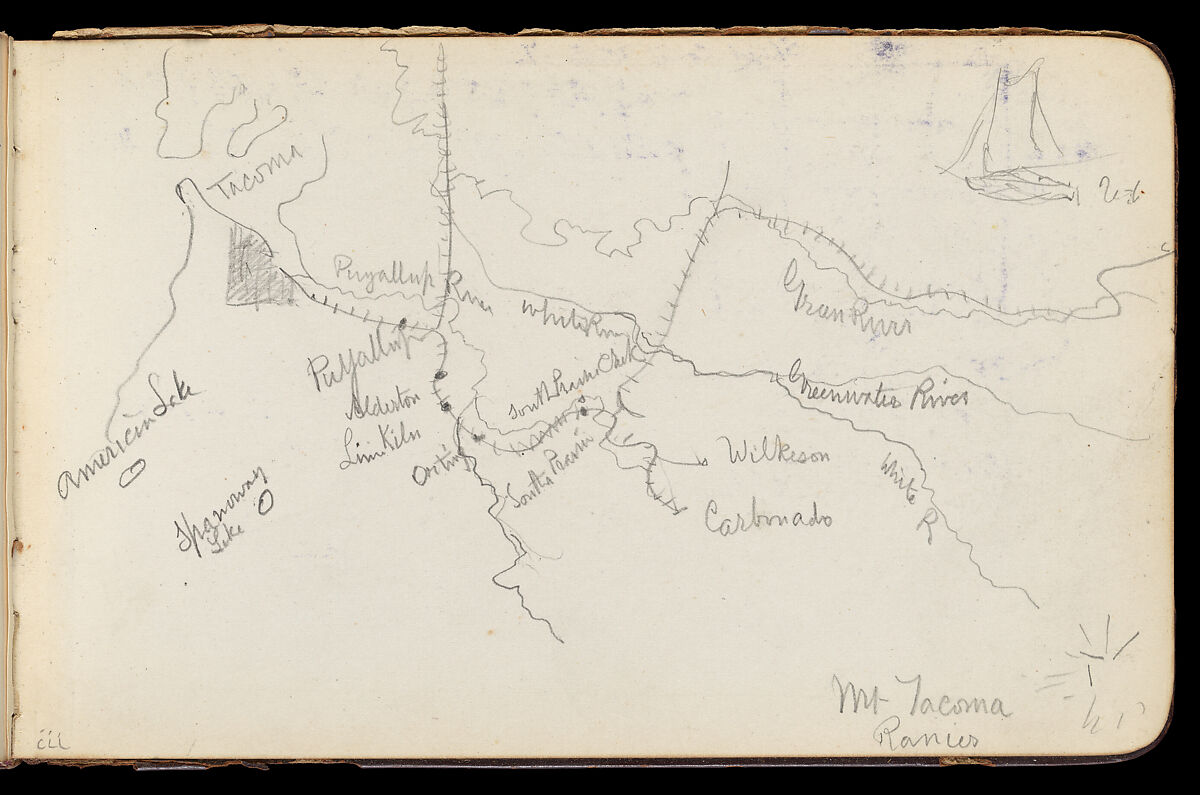 Tacoma
Puyallup River
White River
Green River
Puyallup
Alderton
Lime Kiln
Orting
South Prairie Creek
South Prairie
Greenwater River
American Lake
Spanaway
Lake
Wilkeson
White R
Carbonado
Mt Tacoma
Ranier